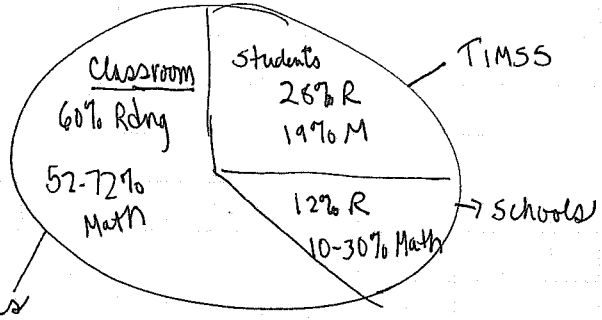 Classroom
60% Rdng
52-72%
Math
Students
28% R
19% M
TIMSS
12% R
10-30% Math
→ schools